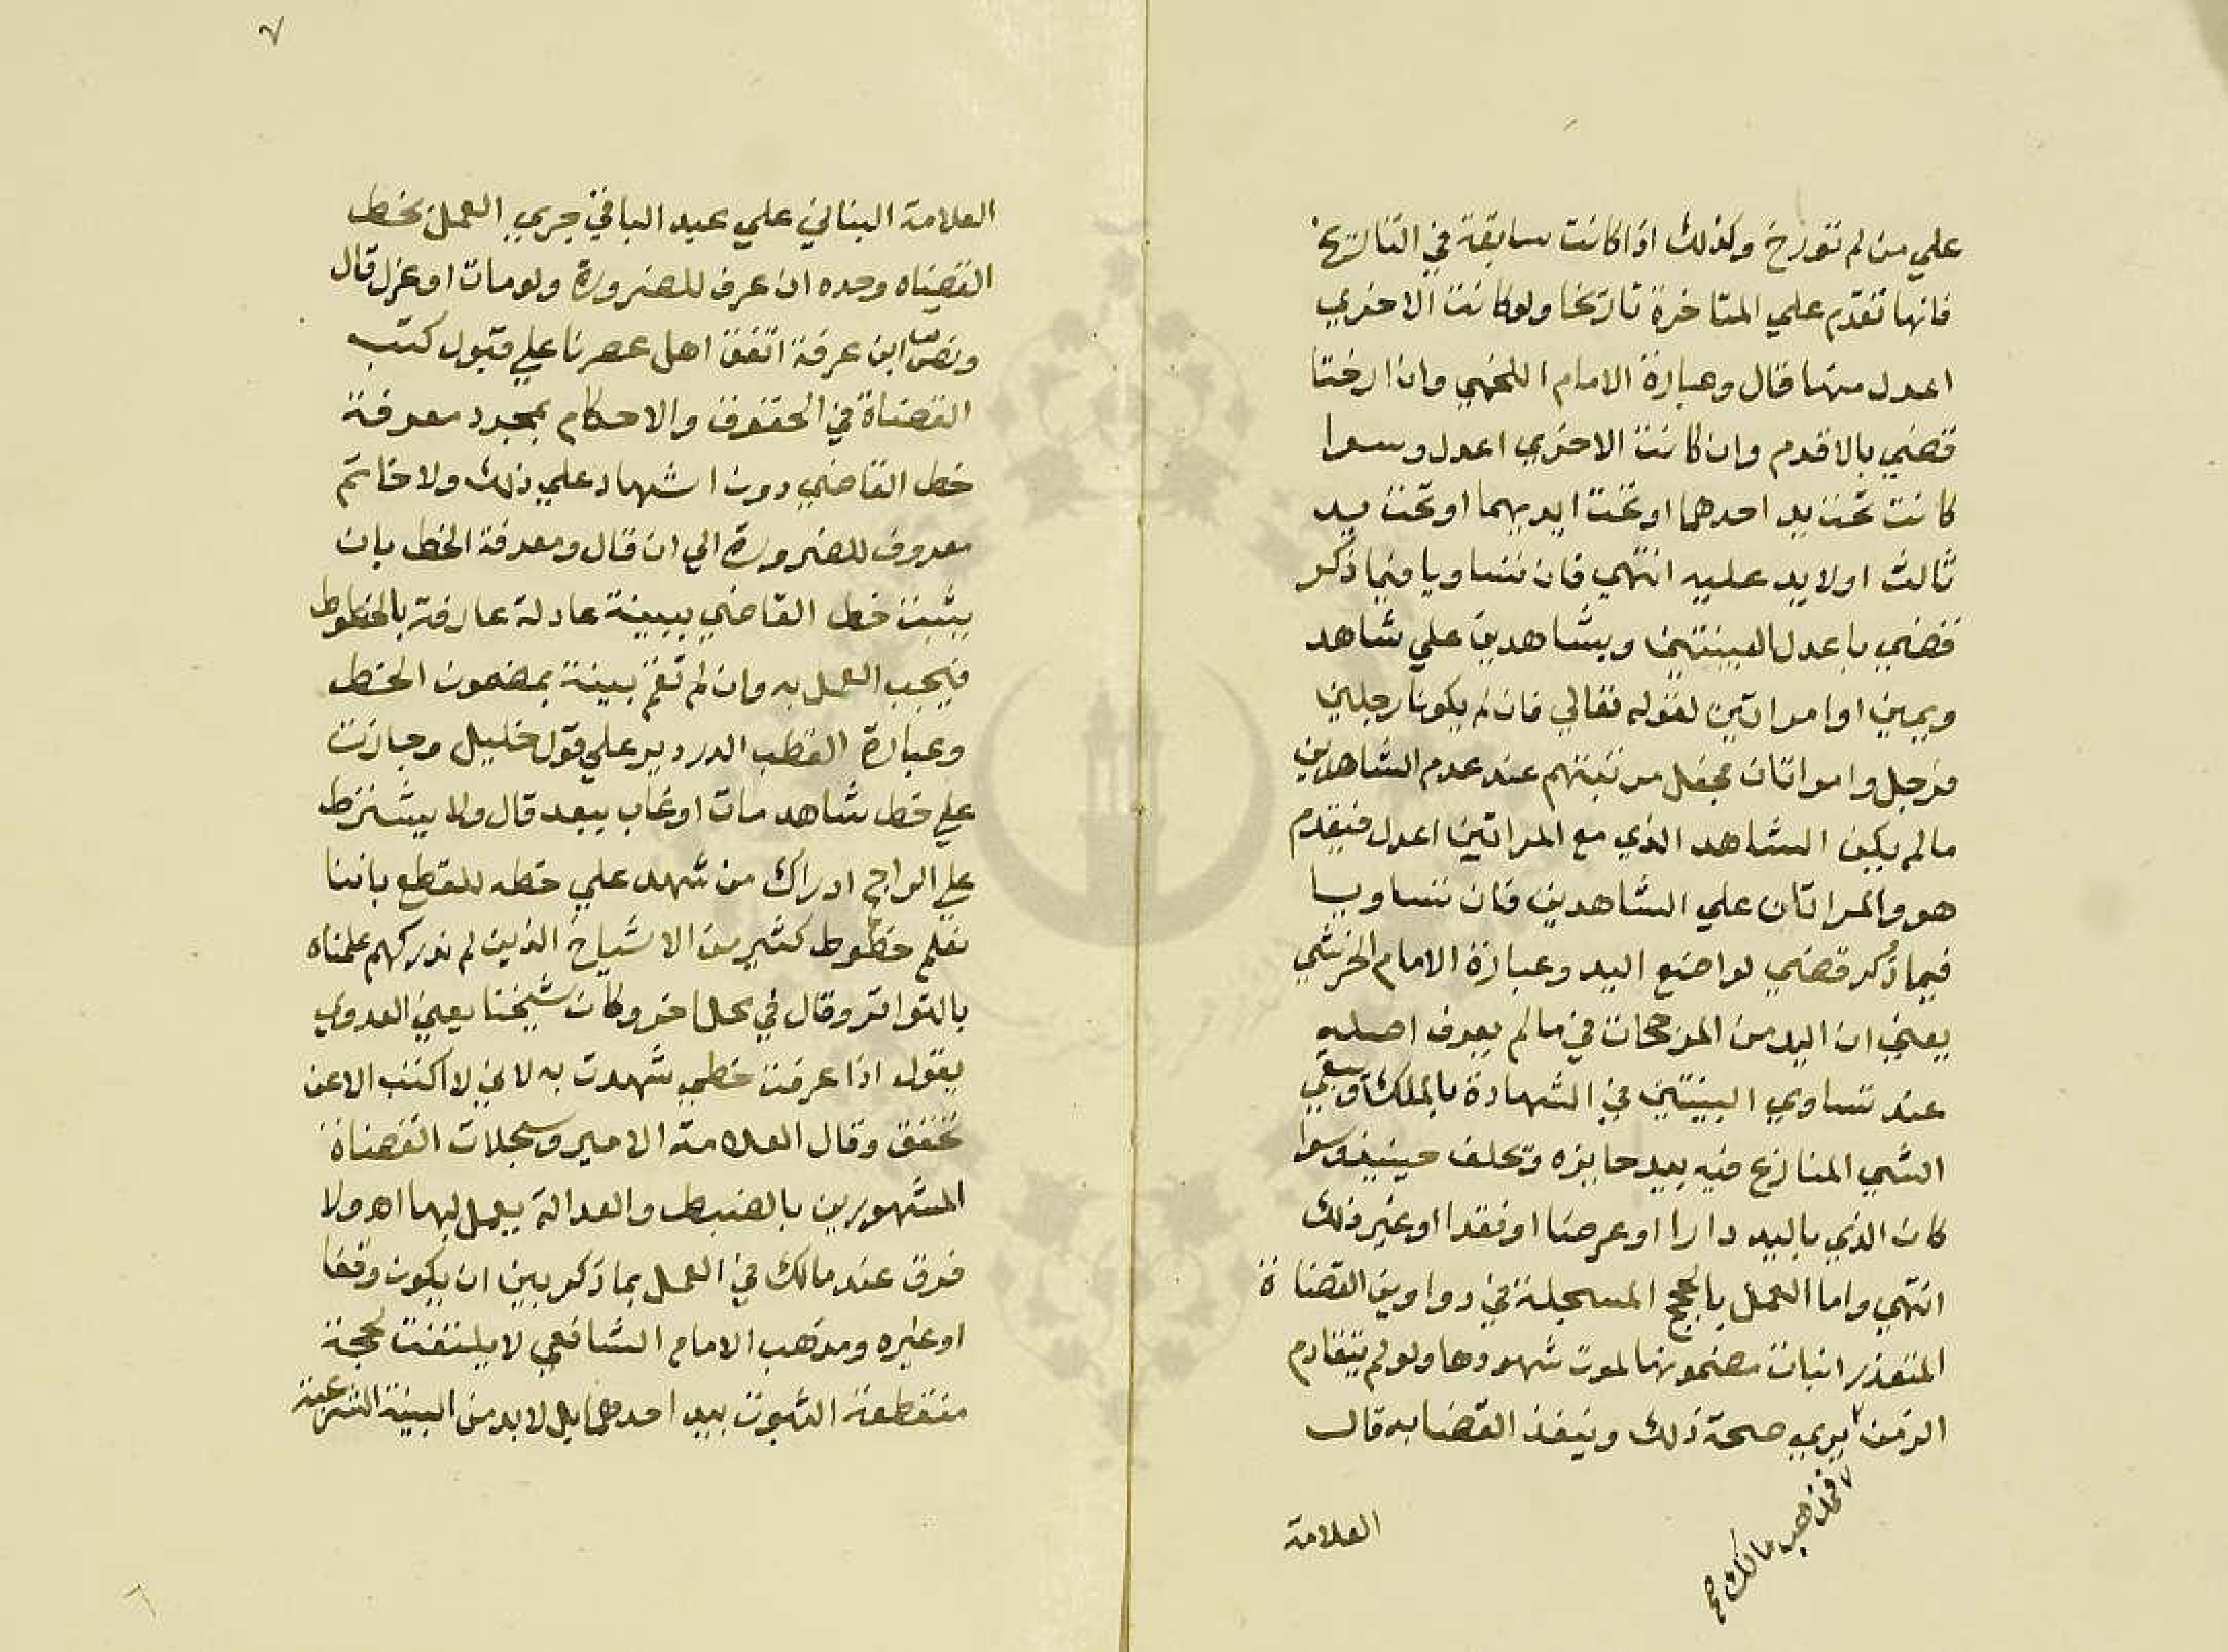 علي من لم تورخ وكذلك اذا كانت سابقة في التاريخ
فانها تقدم علي المتاخرة تاريخا ولو كانت الاخري
اعدل منها قال وعبارة الامام اللخمي وان ارختا
قضي بالاقدم وان كانت الاخري اعدل وسوا
كانت تحت يد احدهما او تحت ايديهما او تحت يد
ثالث او لا يد عليه انتهي فان تساويا فيما ذكر
قضي باعدل البينتين وبشاهدين علي شاهد
ويمين او امراتين لقوله تعالي فان لم يكونا رجلين
فرجل وامراتان فجعل مرتبتهم عند عدم الشاهدين
ما لم يكن الشاهد الذي مع المراتين اعدل فيقدم
هو والمراتان علي الشاهدين فان تساويا
فيما ذكر قضي لواضع اليد وعبارة الامام الخرشي
يعني ان اليد من المرجحات في ما لم يعرف اصله
عند تساوي البينتين في الشهادة بالملك ويبقي
الشي المتنازع فيه بيد حايزه ويحلف حينيذ وسوا
كان الذي باليد دارا او عرضا او نقدا او غير ذلك
انتهي واما العمل بالحجج المسجلة في دواوين القضاة
المتعذر اثبات مضمونها لموت شهودها ولو لم يتقادم
الزمن يري صحة ذلك وينفذ القضا به قال
فمذهب مالك صح
العلامة
٧
العلامة البناني علي عبد الباقي جري العمل بخط
القضاه وحده ان عرف للضرورة ولو مات او عزل قال
ونص ابن عرفة اتفق اهل عصرنا علي قبول كتب
القضاة في الحقوق والاحكام بمجرد معرفة
خط القاضي دون اشهاد علي ذلك ولا خاتم
معروف للضرورة الي ان قال ومعرفة الخط بان
يثبت خط القاضي ببينة عادلة عارفة بالخطوط
فيجب العمل به وان لم تقم بينة بمضمون الخط
وعبارة القطب الدردير علي قول خليل وجازت
علي خط شاهد مات او غاب ببعد قال ولا يشترط
علي الراجح ادراك من شهد علي خطه للقطع باننا
نعلم خطوط كثير من الاشياخ الذين لم ندركهم علمناه
بالتواتر وقال في محل اخر وكان شيخنا يعني العدوي
يقول اذا عرفت خطي شهدت به لاني لا اكتب الا عن
تحقق وقال العلامة الامير وسجلات القضاة
المشهورين بالضبط والعدالة يعمل بها اه ولا
فرق عند مالك في العمل بما ذكر بين ان يكون وقفا
او غيره ومذهب الامام الشافعي لا يلتفت لحجة
منقطعة الثبوت بيد احدهما بل لا بد من البينة الشرعية